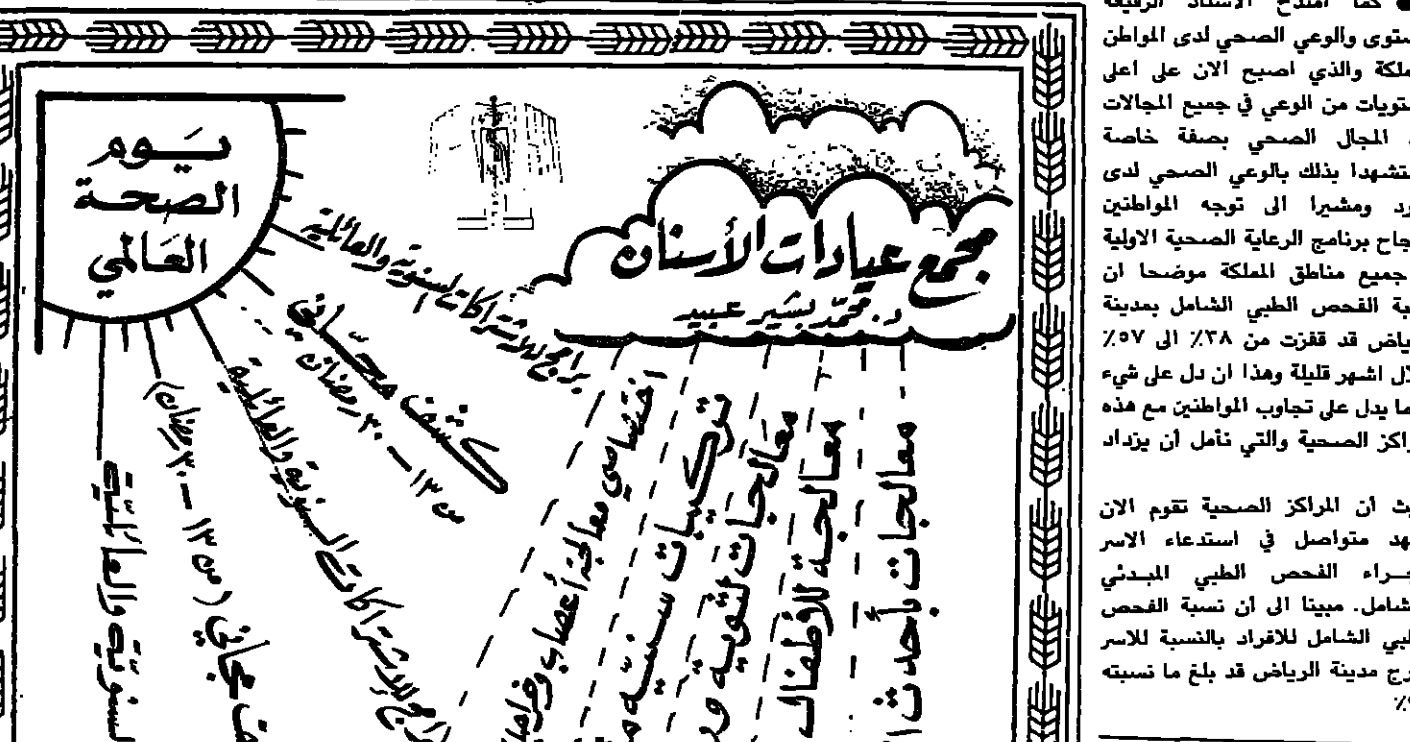 يوم
الصحة
العالمي
مجمع عيادات الأسنان
د. محمد بشير عبيد
برامج للاشتراكات السنوية والعائلية
كشف مجاني
من ١٣ - ٣٠ رمضان
برامج للاشتراكات السنوية والعائلية
مجاني (من ١٣ - ٣٠ رمضان)
السنوية والعائلية
اختصاصي معالجة أعصاب
تركيبات سنية
معالجات لثوية
معالجة للأطفال
معالجات بأحدث
كما امتدح الاستاذ
والوعي الصحي لدى المواطن
والذي اصبح الان على اعلى
من الوعي في جميع المجالات
المجال الصحي بصفة خاصة
بذلك بالوعي الصحي لدى
ومشيرا الى توجه المواطنين
برنامج الرعاية الصحية الاولية
جميع مناطق المملكة موضحا ان
الفحص الطبي الشامل بمدينة
قد قفزت من ٣٨٪ الى ٥٧٪
اشهر قليلة وهذا ان دل على شيء
ما يدل على تجاوب المواطنين مع هذه
الصحية والتي نأمل أن يزداد
أن المراكز الصحية تقوم الان
متواصل في استدعاء الاسر
الفحص الطبي المبدئي
مبينا الى أن نسبة الفحص
الشامل للافراد بالنسبة للاسر
مدينة الرياض قد بلغ ما نسبته